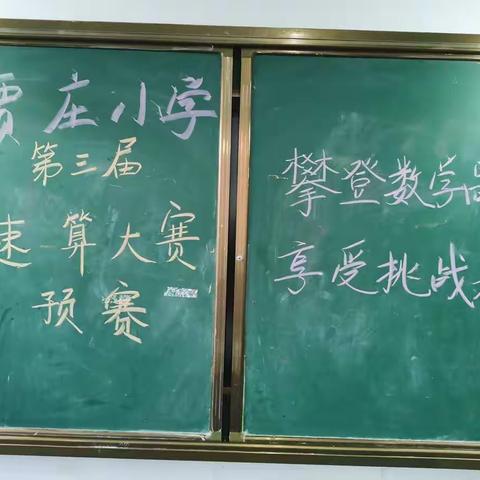 贾庄小学
第三届
速算大赛
预赛
攀登数学高
享受挑战